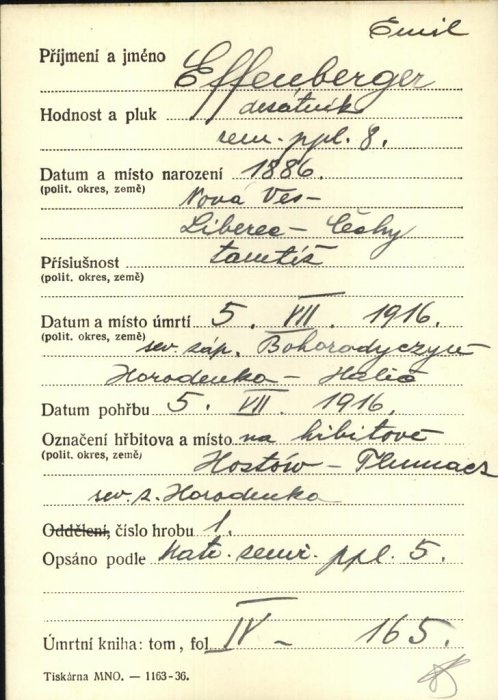 Emil
Příjmení a jméno Effenberger
Hodnost a pluk desátník
sem. ppl. 8.
Datum a místo narození 1886.
(polit. okres, země)
Nová Ves -
Liberec - Čechy
Příslušnost tamtéž
(polit. okres, země)
Datum a místo úmrtí 5. VII. 1916.
(polit. okres, země)
sev. záp. Bohorodyczyn
Horodenka - Halič
Datum pohřbu 5. VII. 1916.
Označení hřbitova a místo na hřbitově
(polit. okres, země)
Hostów - Tlumacz
sev. z. Horodenka
Oddělení, číslo hrobu 1.
Opsáno podle Matr. zemř. ppl. 5.
Úmrtní kniha: tom, fol IV - 165.
Tiskárna MNO. — 1163-36.